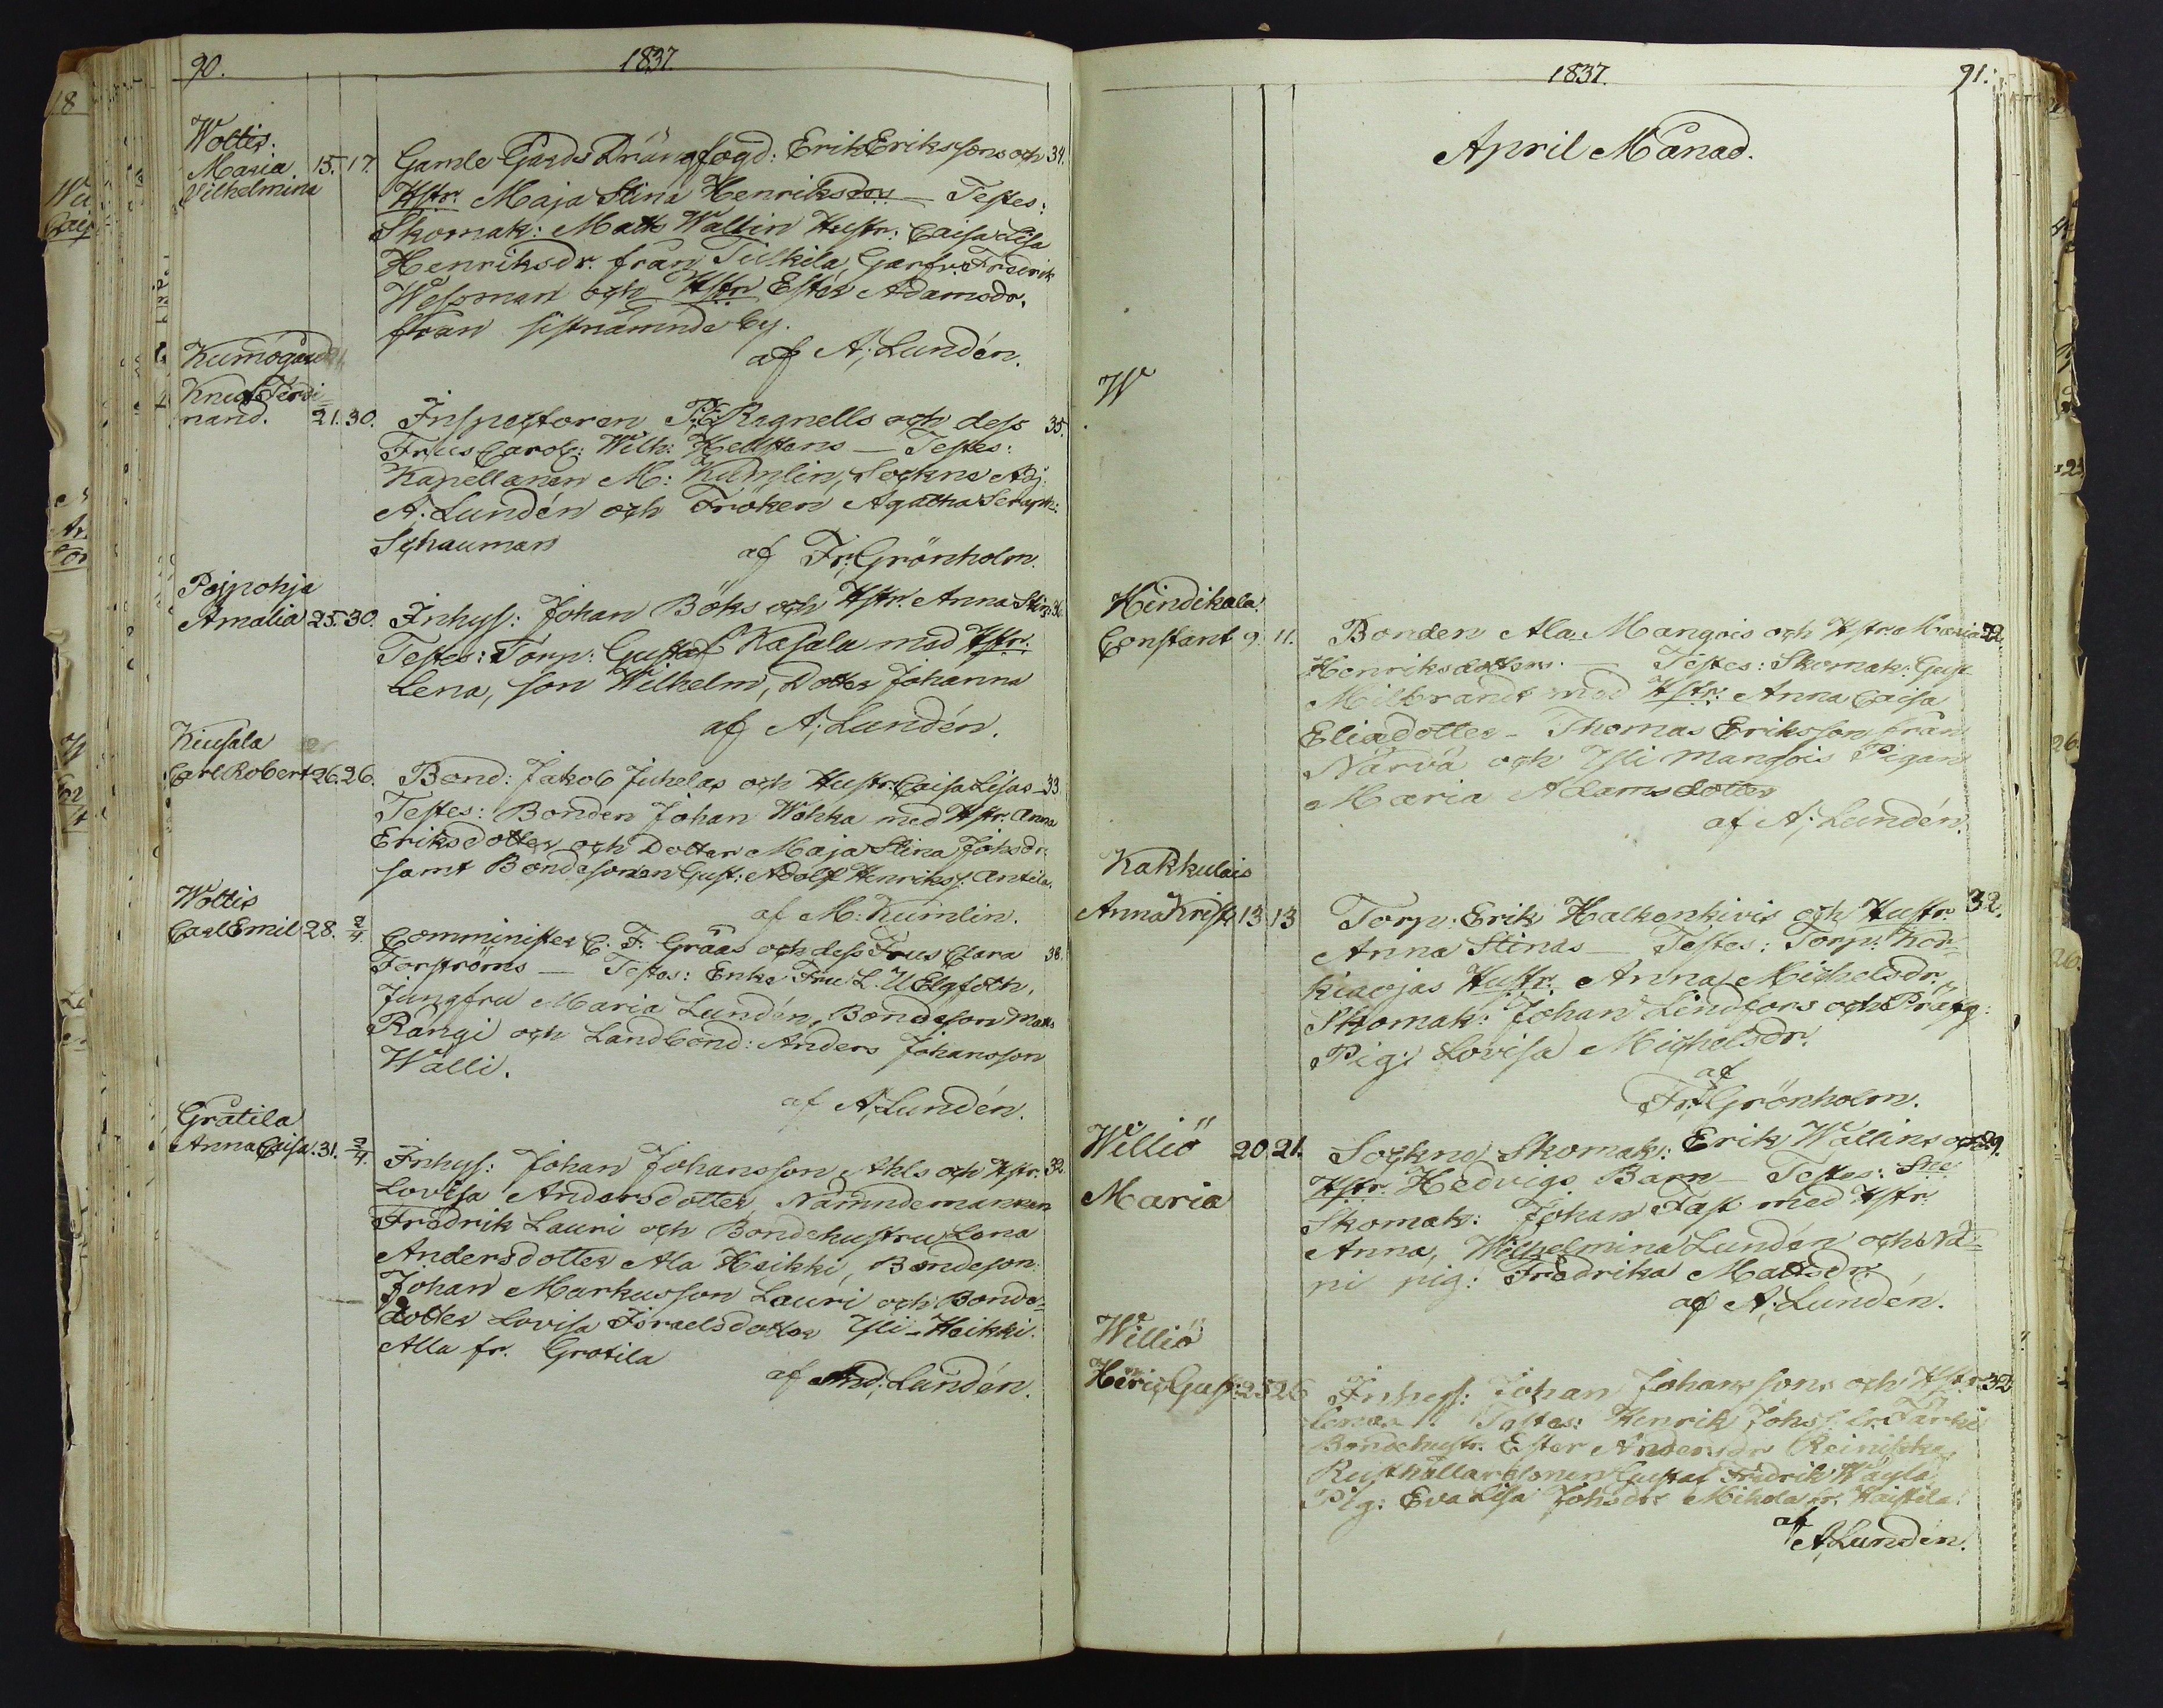 90.
1837.
Woltis.
Maria 15. 17. Gamle Gårds Drängfogd: Erik Erikssons och 34.
Wilhelmina
Hstr. Maja Stina Henriksdrs — Testes:
Skomak: Matts Wallin Hustr: Caisa Lisa
Henriksdr. från Tulkila, Garfv: Fredrik
Wessman och Hstr Ester Adamsdr.
från sistnämnde by.
af A; Lundén.
Kumogård
Knut Ferdi=
nand. 21. 30. Inspectoren Ragnells och dess 35.
Frus Carol: Wilh: Hedstens — Testes:
Kapellanen M: Kumlin, Sockne Adj:
A. Lundén och Fröken Agatha Seraph:
Schauman
af Fr: Grönholm.
Pajpohja
Amalia 25. 30. Inhys: Johan Böks och Hstr. Anna Stin:
Testes: Torp: Gustaf Kasala med Hstr.
Lena, son Wilhelm, Dotter Johanna
af A; Lundén.
Kiusala
Carl Robert 26. 26. Bond: Jakob Juhelas och Hustr: Caisa Lisas 33.
Testes: Bonden Johan Wohka med Hstr. Anna
Eriksdotter och Dotter Maja Stina Johsdr.
samt Bondesonen Gust: Adolf Henrikss: Antila.
af M: Kumlin.
Woltis
Carl Emil 28. 2/4. Comminister C. F. Grääs och dess Frus Clara 38.
Forströms — Testes: Enke Fru L. U Elgfoth,
Jungfru Maria Lundén, Bondeson Matts
Rangi och Landbond: Anders Johansson
Walli.
af A; Lundén.
Gratila
Anna Caisa. 31. 2/4. Inhys: Johan Johansson Ahls och Hstr. 32.
Lovisa Andersdotter, Nämndemannen
Fredrik Lauri och Bondehustru Lena
Andersdotter Ala Heikki, Bondeson
Johan Markusson Lauri och Bonde=
dotter Lovisa Israelsdotter Yli-Heikki.
Alla fr. Gratila
af And; Lundén.
1837. 91.
April Månad.
W
Hindikala.
Constant 9. 11. Bonden Ala Mangois och Hstr. Maria 22.
Henriksdotters. — Testes: Skomak: Gust
Milbrandt med Hstr. Anna Caisa
Eliædotter — Thomas Eriksson från
Närvä och Yli Mangois Pigan
Maria Adamsdotter
af A; Lundén.
Kakkulais
Anna Krist: 13 13 Torp: Erik Halkonkivis och Hustr. 32.
Anna Stinas — Testes: Torp: Kor=
kiaojas Hustr. Anna Michelsdr.
Skomak: Johan Lindfors och Präfg:
Pig: Lovisa Michelsdr.
af
Fr; Grönholm.
Williö 20. 21. Sockne Skomak: Erik Wallins och 29.
Maria
Hstr. Hedvigs Barn — Testes: Sne
Skomak: Johan Fast med Hstr.
Anna, Wilhelmina Lundén och Nä=
pi pig: Fredrika Mattsdr.
af A; Lundén.
Williö
Henric Gust: 25 26 Inhys: Johan Johanssons och Hstr. 32
Lenæs. Testes: Henrik Johss: fr. Järki
Bondehustr. Ester Andersdr Reiniska,
Rusthållarsonen Gustaf Fredrik Wägla
Pig: Eva Lisa Johsdr Mikola fr. Haistila.
af
A; Lundén.